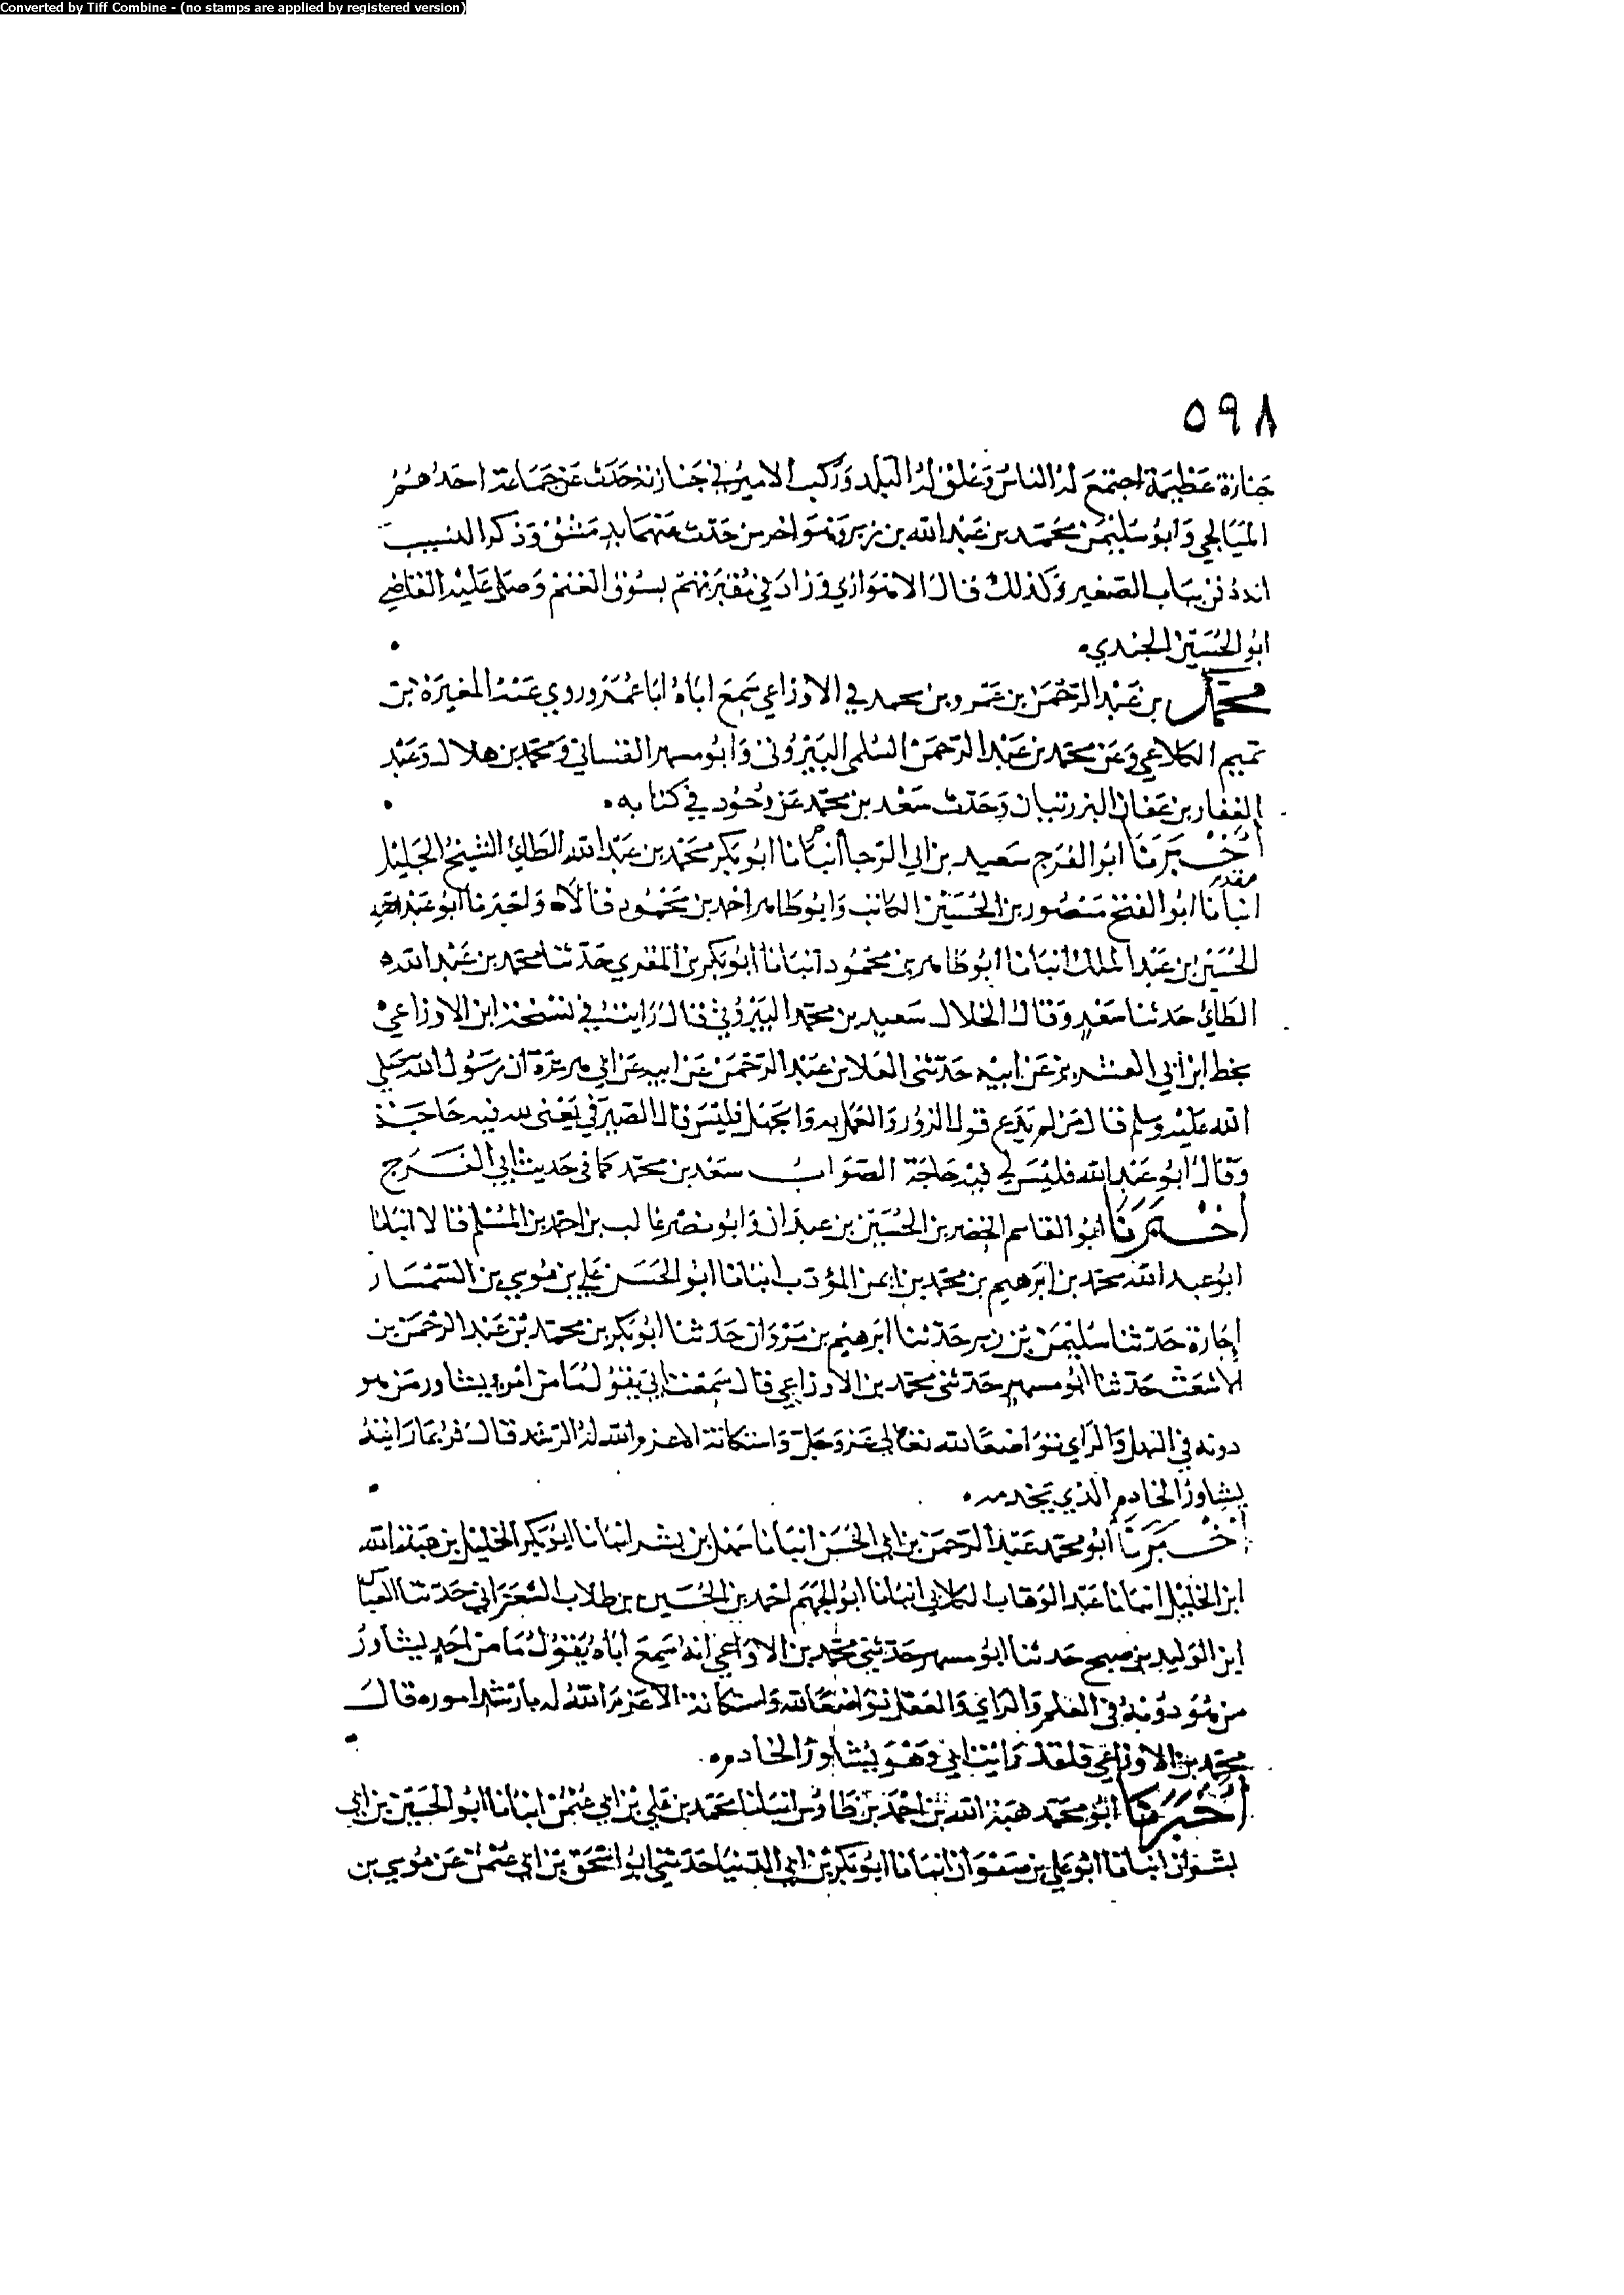 Converted by Tiff Combine - (no stamps are applied by registered version)
٥٩٨
جنازة عظيمة اجتمع له الناس وغلق له البلد وركب الامير في جنازته حدث عن جماعة احدهم
الميانجي وابو سليمن محمد بن عبد الله بن زبر وهو اخر من حدث عنهما بدمشق وذكر النسيب
انه دفن بباب الصغير وكذلك قال الاهوازي وزاد في مقبرتهم بسوق الغنم وصلى عليه القاضي
ابو الحسين الجندي
محمد بن عبد الرحمن بن عمرو بن محمد في الاوزاعي سمع اباه ابا عمرو روي عنه المغيرة بن
تميم الكلاعي وعن محمد بن عبد الرحمن السلمي البيروتي وابو مسهر الغساني ومحمد بن هلال وعبد
الغفار بن عفان البزرتبان وحدث سعد بن محمد عن وجود في كتابه
أخبرنا ابو الفرج سعيد بن ابي الرجا أنبانا ابو بكر محمد بن عبد الله الطائي الشيخ الجليل
انبانا ابو الفتح منصور بن الحسين الكاتب وابو طاهر احمد بن محمود قالا ه واخبرنا ابو عبد الله
الحسين بن عبد الملك انبانا ابو طاهر بن محمود انبانا ابو بكر بن المقري حدثنا محمد بن عبد الله
الطائي حدثنا سعد وقال الخلال سعيد بن محمد البيروتي قال رايت في نسخة ابن الاوزاعي
بخط ابن ابي العشرين عن ابيه حدثني العلا بن عبد الرحمن عن ابيه عن ابي هريرة ان رسول الله صلى
الله عليه وسلم قال من لم يدع قول الزور والعمل به والجهل فليس قال الصيرفي يعني لله فيه حاجة
وقال ابو عبد الله فليس لي فيه حاجة الصواب سعد بن محمد كما في حديث ابي الفرج
أخبرنا ابو القاسم الخضر بن الحسين بن عبدان وابو نصر غالب بن احمد بن المسلم قالا انبانا
ابو عبد الله محمد بن ابرهيم بن محمد بن ايمن المؤدب انبانا ابو الحسن علي بن موسي بن السمسار
إجازة حدثنا سليمن بن زبر حدثنا ابرهيم بن مروان حدثنا ابو بكر بن محمد بن عبد الرحمن بن
الاشعث حدثنا ابو مسهر حدثني محمد بن الاوزاعي قال سمعت ابي يقول ما من امرء يشاور من هو
دونه في النبل والراي تواضعا لله تعالى عز وجل واستكانة الا عزم الله له الرشد قال فربما رايته
يشاور الخادم الذي يخدمه
أخبرنا ابو محمد عبد الرحمن بن ابي الحسن انبانا سهل بن بشر انبانا ابو بكر الخليل بن هبة الله
ابن الخليل انبانا عبد الوهاب الكلابي انبانا ابو الجهم احمد بن الحسين بن طلاب الشعراني حدثنا العباس
ابن الوليد بن صبح حدثنا ابو مسهر حدثني محمد بن الاوزاعي انه سمع اباه يقول ما من احد يشاور
من هو دونه في العلم والراي والعقل تواضعا لله واستكانة الا عزم الله له بارشد اموره قال
محمد بن الاوزاعي فلقد رايت ابي وهو يشاور الخادم
أخبرنا ابو محمد هبة الله بن احمد بن طاوس انبانا محمد بن علي بن ابي عثمن انبانا ابو الحسين بن ابي
بشران انبانا ابو علي بن صفوان انبانا ابو بكر بن ابي الدنيا حدثني ابو اسحق بن ابي عثمن عن موسي بن